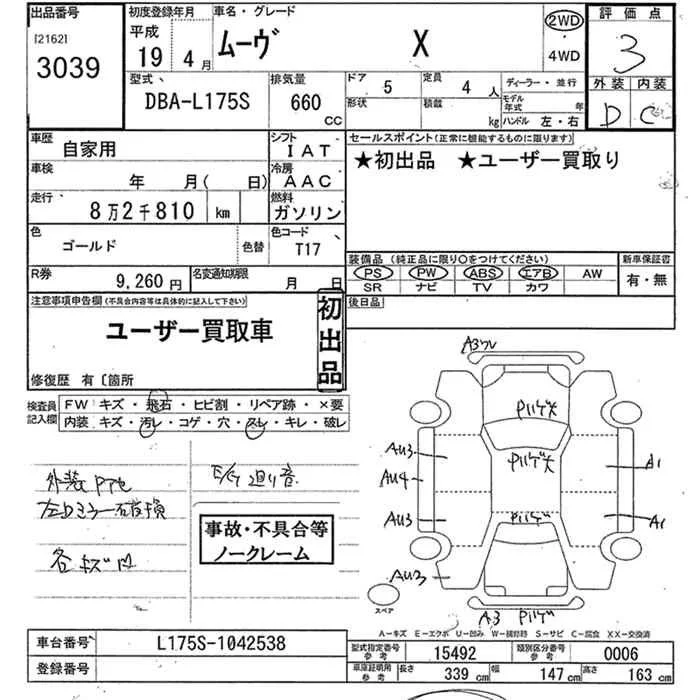 出品番号 初度登録年月 車名・グレード 評価点
[2162] 平成 ムーヴ X 2WD 3
3039 19年4月 4WD
型式 排気量 ドア 5 定員 4人 ディーラー・並行 外装 内装
DBA-L175S 660 CC 形状 積載 kg モデル年式 年 D C
ハンドル 左・右
車歴 自家用 シフト IAT セールスポイント(正常に機能するものに限ります)
車検 年 月( 日) 冷房 AAC ★初出品 ★ユーザー買取り
走行 8万2千810 km 燃料 ガソリン
色 ゴールド 色替 色コード T17
装備品(純正品に限り○をつけてください) 新車保証書
R券 9,260円 名変通知期限 月 日 PS PW ABS エアB AW 有・無
SR ナビ TV カワ
注意事項申告欄(不具合内容等は具体的に記入して下さい) 後日品
ユーザー買取車 初出品
修復歴 有〔箇所
検査員記入欄 FW キズ・飛石・ヒビ割・リペア跡・×要
内装・キズ・汚レ・コゲ・穴・スレ・キレ・破レ
外装
左ドミラー破損
各キズ凹
E/G廻り音
事故・不具合等
ノークレーム
A3
AU3
AU4
AU3
AU3
A1
A1
A3
スペア
A-キズ E-エクボ U-凹み W-補修跡 S-サビ C-腐食 XX-交換済
車台番号 L175S-1042538 型式指定番号 参考 15492 類別区分番号 参考 0006
登録番号 車庫証明用 参考 長さ 339 cm 幅 147 cm 高さ 163 cm